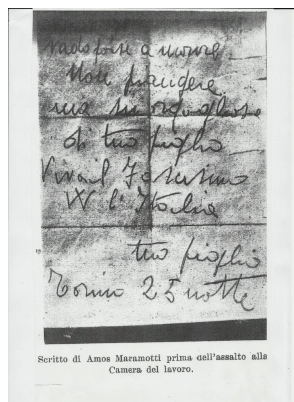 Vado forse a morire
Non piangere
ma sii orgogliosa
di tuo figlio
Viva il Fascismo
W l'Italia
tuo figlio
Torino 25 notte
Scritto di Amos Maramotti prima dell'assalto alla
Camera del lavoro.